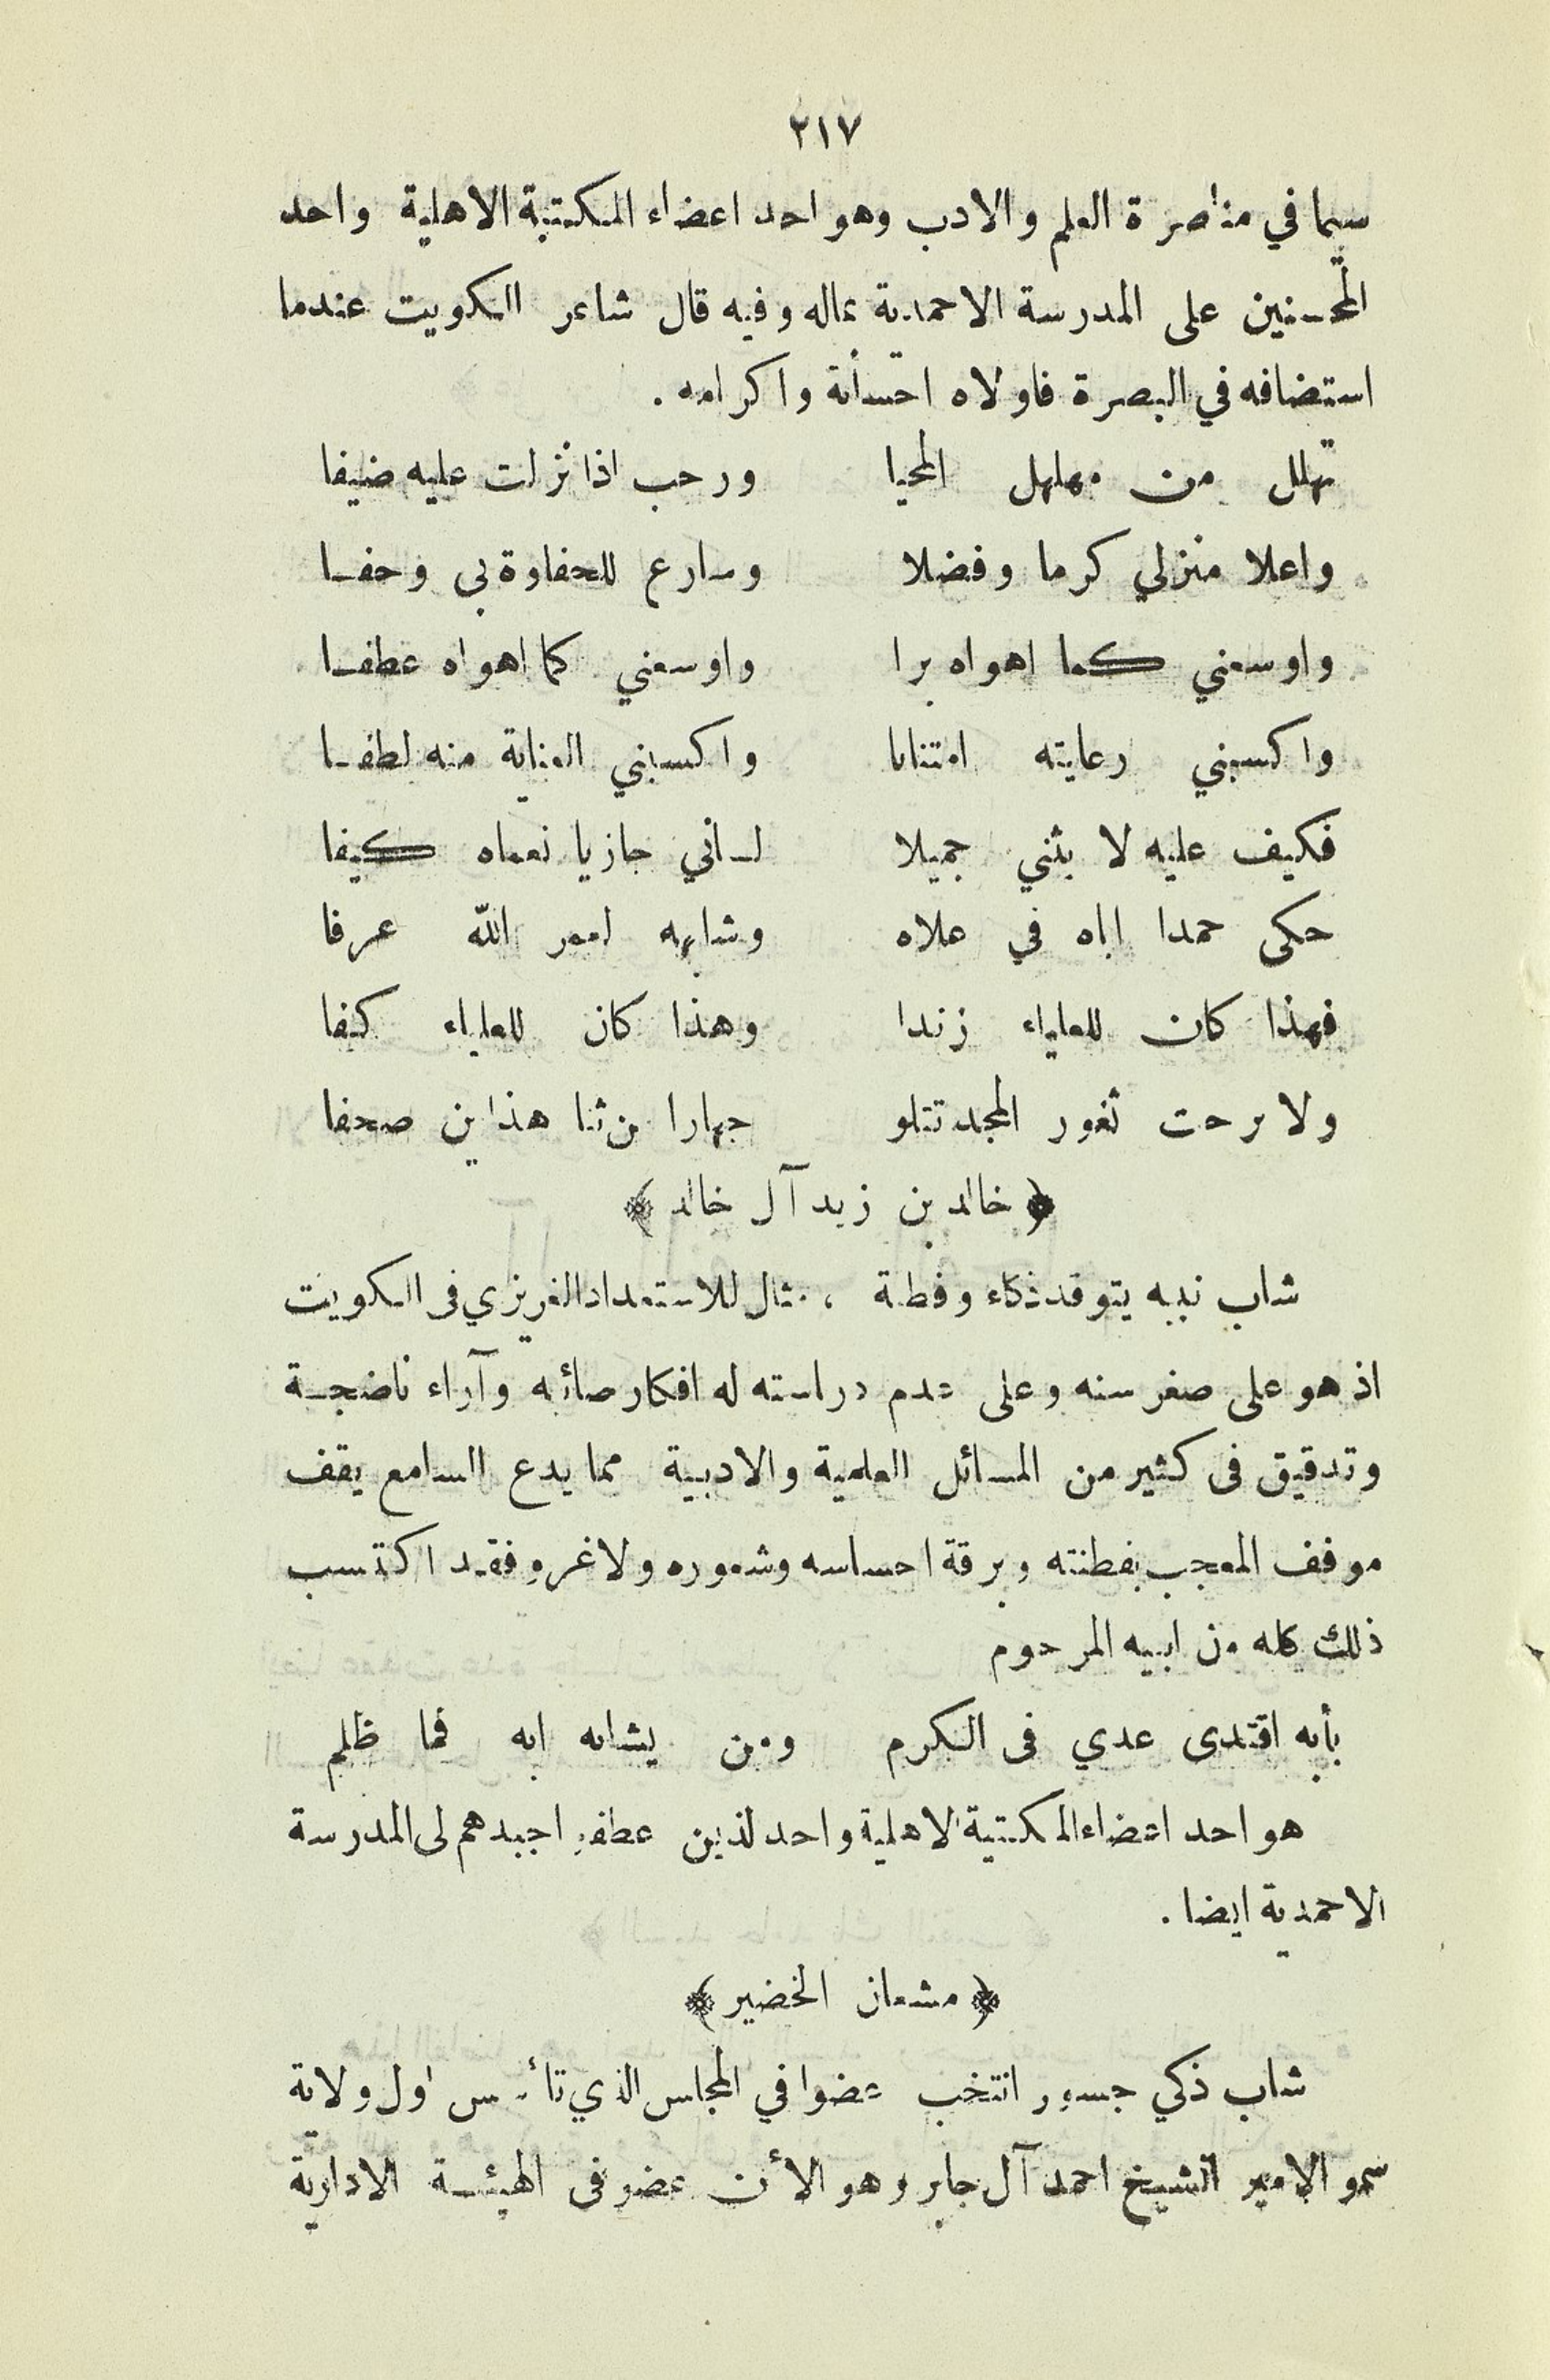 ٢١٧
سيما في مناصرة العلم والادب وهو احد اعضاء المكتبة الاهلية واحد
المحسنين على المدرسة الاحمدية بماله وفيه قال شاعر الكويت عندما
استضافه في البصرة فاولاه احسانه واكرامه .
تهلل من مهلهل المحيا ورحب اذا نزلت عليه ضيفا
واعلا منزلي كرما وفضلا وسارع للحفاوة بي وحفا
واوسعني كما اهواه برا واوسعني كما اهواه عطفا
واكسبني رعايته امتنانا واكسبني العناية منه لطفا
فكيف عليه لا يثني جميلا لساني جازيا نعماه كيفا
حكى حمدا اباه في علاه وشابهه لعمر الله عرفا
فهذا كان للعلياء زندا وهذا كان للعلياء كفا
ولا برحت ثغور المجد تتلو جهارا من ثنا هذاين صحفا
﴿ خالد بن زيد آل خالد ﴾
شاب نبيه يتوقد ذكاء وفطنة ، مثال للاستعداد الغريزي فى الكويت
اذ هو على صغر سنه وعلى عدم دراسته له افكار صائبه وآراء ناضجة
وتدقيق فى كثير من المسائل العلمية والادبية مما يدع السامع يقف
موقف المعجب بفطنته وبرقة احساسه وشعوره ولا غرو فقد اكتسب
ذلك كله من ابيه المرحوم
بأبه اقتدى عدي فى الكرم ومن يشابه ابه فما ظلم
هو احد اعضاء المكتبة الاهلية واحد لذين عطفو اجيدهم لى المدرسة
الاحمدية ايضا .
﴿ مشعان الخضير ﴾
شاب ذكي جسور انتخب عضوا في المجلس الذي تأسس اول ولاية
سمو الامير الشيخ احمد آل جابر وهو الأن عضو فى الهيئة الادارية